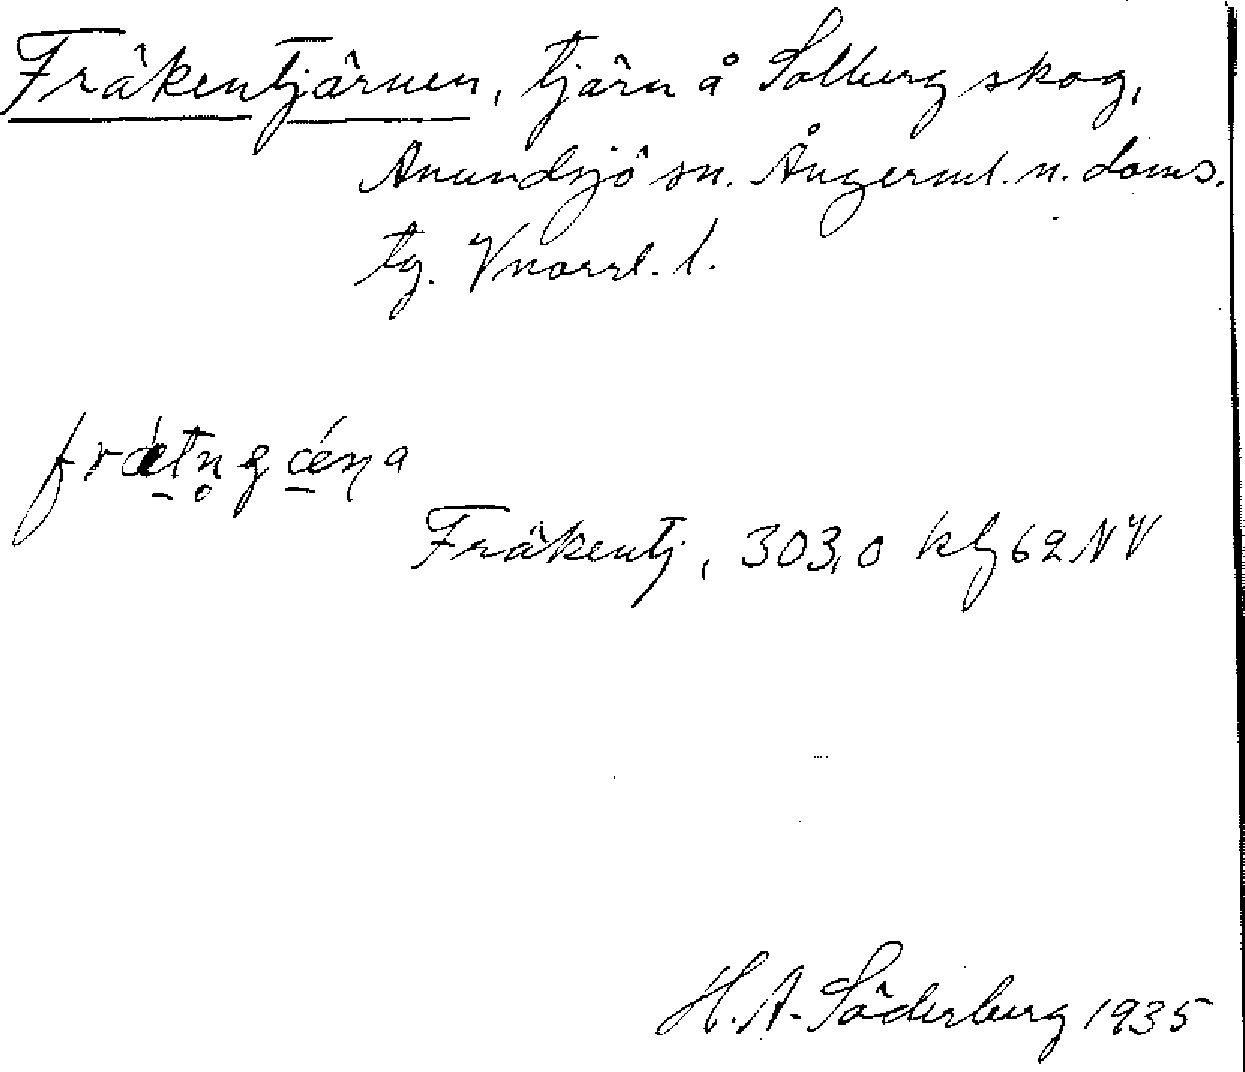 Fräkentjärnen, tjärn å Solberg skog,
Anundsjö sn. Ångerml. n. doms.
tg. Vnorrl. l.
Fräkentj, 303,0 kbl 62 NV
H. A. Söderberg 1935